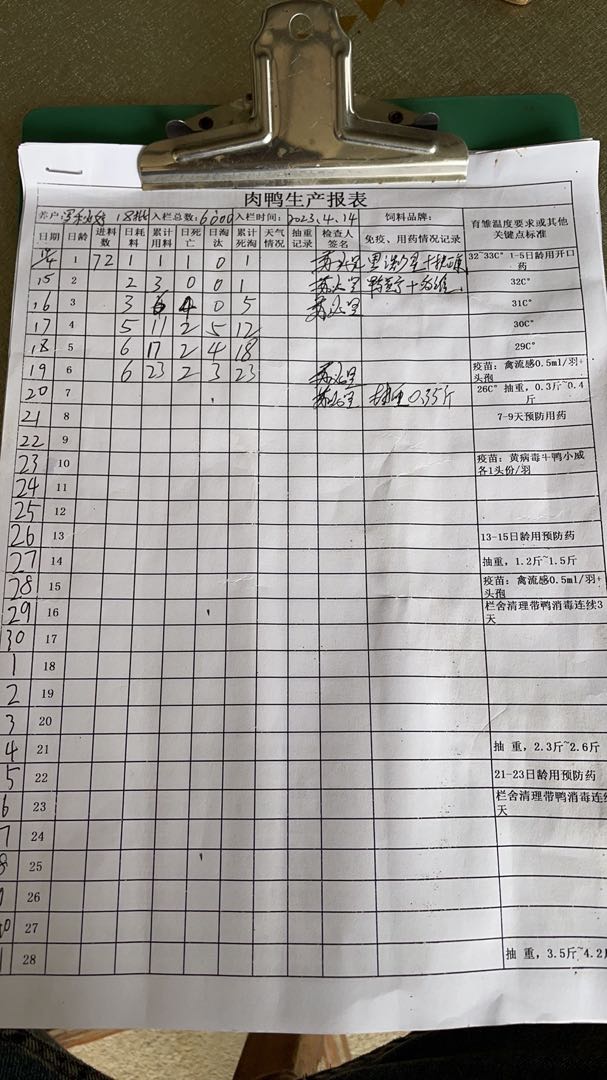 肉鸭生产报表
养户 18批 入栏总数:6000 入栏时间:2023.4.14 饲料品牌: 育雏温度要求或其他关键点标准
日期 日龄 进料数 日耗料 累计用料 日死亡 日淘汰 累计死淘 天气情况 抽重记录 检查人签名 免疫、用药情况记录
1 72 1 1 1 0 1 32~33C° 1-5日龄用开口药
15 2 2 3 0 0 1 32C°
16 3 3 6 4 0 5 31C°
17 4 5 11 2 5 12 30C°
18 5 6 17 2 4 18 29C°
19 6 6 23 2 3 23 疫苗:禽流感0.5ml/羽+头孢
20 7 抽重0.35斤 26C° 抽重,0.3斤~0.4斤
21 8 7-9天预防用药
22 9
23 10 疫苗:黄病毒+鸭小威各1头份/羽
24 11
25 12
26 13 13-15日龄用预防药
27 14 抽重,1.2斤~1.5斤
28 15 疫苗:禽流感0.5ml/羽+头孢
29 16 栏舍清理带鸭消毒连续3天
30 17
1 18
2 19
3 20
4 21 抽 重,2.3斤~2.6斤
5 22 21-23日龄用预防药
6 23 栏舍清理带鸭消毒连续天
7 24
8 25
26
27
28 抽 重,3.5斤~4.2斤